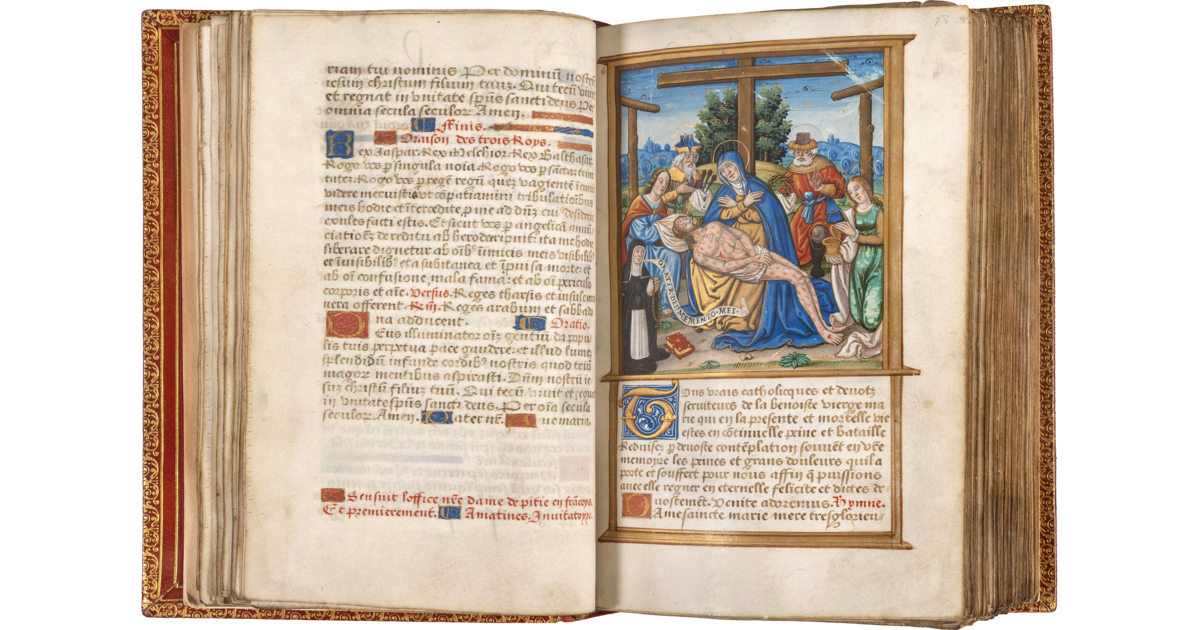 riam tui nominis Per dominũ nostr̃
iesum christum filium tuũz. Qui tecũ viu
et regnat in vnitate spũs sancti deus Pe
omnia secula seculor Amen.
Ffinis.
Oraison des trois Roys.
Rex Jaspar. Rex Melchior. Rex Balthasar
Rogo vos p singula noĩa. Rogo vos p sanctam trini
tatez. Rogo vos p regẽ regũ quez vagientẽ ĩ cuni
videre meruistis vt cõpatiamini tribulationibus
meis hodie et ĩtercedite p me ad dñz cui desiderio
exules facti estis. Et sicut vos p angelicã annũ
ciationẽ de reditu ab herode ripuit: ita me hodie
liberare dignetur ab oĩbȝ inimicis meis visibilibȝ
et ĩuisibilibȝ et a subitanea et ĩpuisa morte: et
ab oĩ confusione, mala fama: et ab oĩ periculo
corporis et aĩe. Versus. Reges tharsis et insule mu
nera offerent. Rm̃. Reges arabum et sabba do
na adducent. Oratio.
Deus illuminator oĩz gentiũ da popu
lis tuis perpetua pace gaudere: et illud lumẽ
splendidũ infunde cordibȝ nostris quod triũ
magor mentibus aspirasti. Dñm nostrũ ie
sũz christũ filiuz tuũ. Qui tecũ viuit et regnat
in vnitate spũs sancti deus. Per oĩa secula
seculor. Amen. Pater nr̃. Aue maria.
Sensuit loffice nr̃e dame de pitie en francoys.
Et premierement. A matines. Inuitatoyre
O MATER DEI MEMENTO MEI
Tous vrais catholicques et deuotz
seruiteurs de la benoiste vierge ma
rie qui en la presente et mortelle vie
estes en cõtinuelle peine et bataille
Reduisez p deuoste contẽplation souuẽt en vr̃e
memoyre les peines et grans douleurs quil a
porte et souffert pour nous affin q puissions
auec elle regner en eternelle felicite et dictes de
uostement. Venite adoremus. Hymne.
Dame saincte marie mere tresglorieus